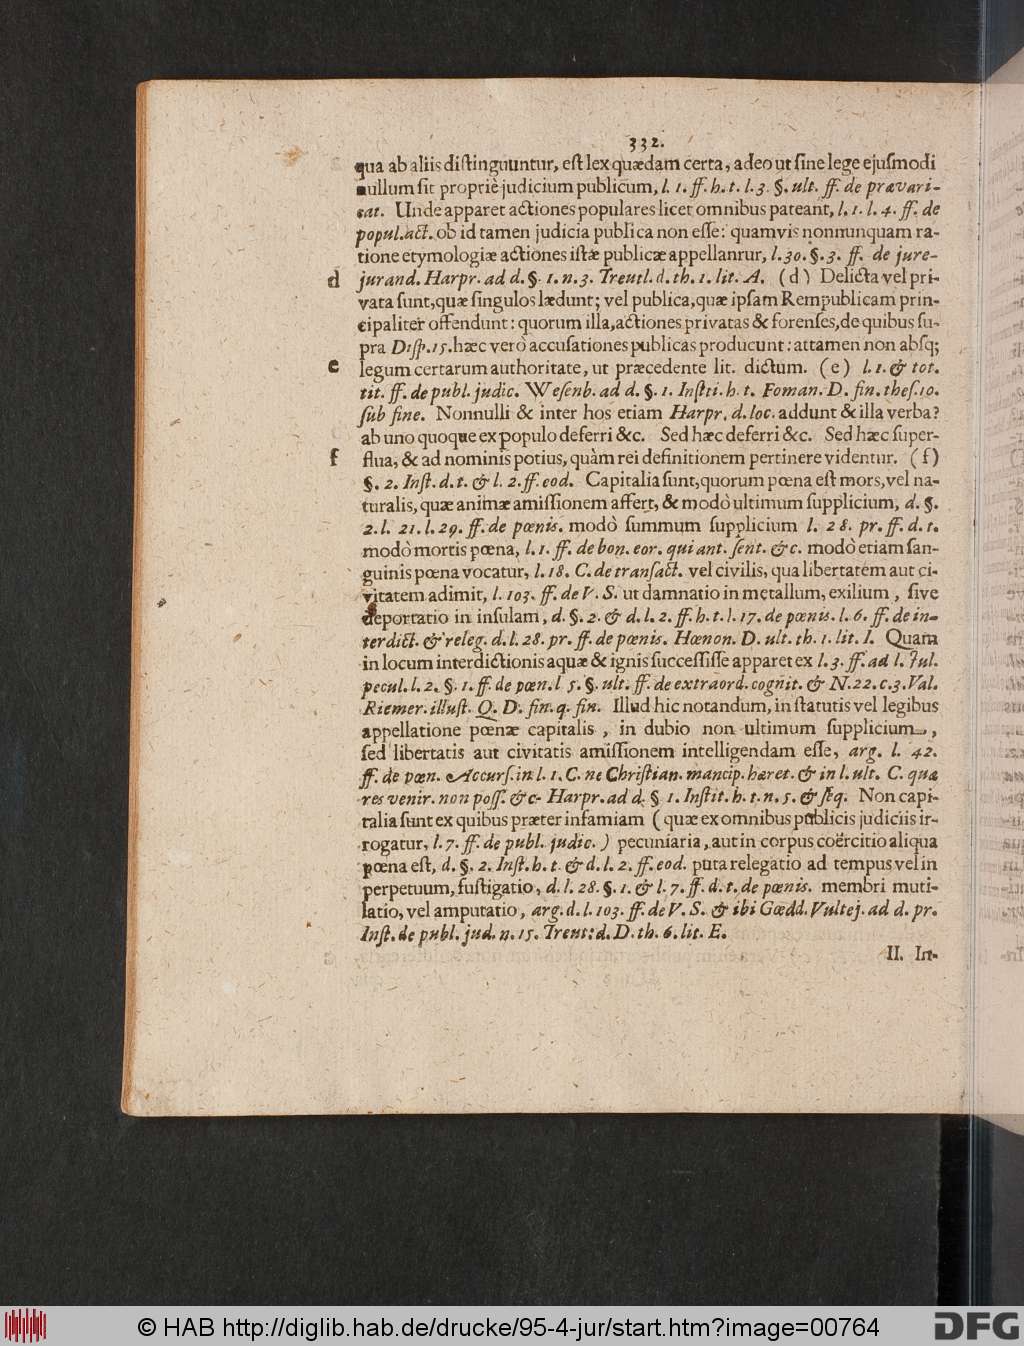 332.
qua ab aliis distinguuntur, est lex quædam certa, adeo ut sine lege ejusmodi
nullum sit propriè judicium publicum, l. 1. ff. h. t. l. 3. §. ult. ff. de prævari-
cat. Unde apparet actiones populares licet omnibus pateant, l. 1. l. 4. ff. de
popul. act. ob id tamen judicia publica non esse: quamvis nonnunquam ra-
tione etymologiæ actiones istæ publicæ appellanrur, l. 30. §. 3. ff. de jure-
d jurand. Harpr. ad d. §. 1. n. 3. Treutl. d. th. 1. lit. A. (d) Delicta vel pri-
vata sunt, quæ singulos lædunt; vel publica, quæ ipsam Rempublicam prin-
cipaliter offendunt: quorum illa, actiones privatas & forenses, de quibus su-
pra Disp. 15. hæc verò accusationes publicas producunt: attamen non absq;
e legum certarum authoritate, ut præcedente lit. dictum. (e) l. 1. & tot.
tit. ff. de publ. judic. Wesenb. ad d. §. 1. Instti. h. t. Foman. D. fin. thes. 10.
sub fine. Nonnulli & inter hos etiam Harpr. d. loc. addunt & illa verba?
ab uno quoque ex populo deferri &c. Sed hæc deferri &c. Sed hæc super-
f flua, & ad nominis potius, quàm rei definitionem pertinere videntur. (f)
§. 2. Inst. d. t. & l. 2. ff. eod. Capitalia sunt, quorum pœna est mors, vel na-
turalis, quæ animæ amissionem affert, & modò ultimum supplicium, d. §.
2. l. 21. l. 29. ff. de pœnis. modò summum supplicium l. 28. pr. ff. d. t.
modò mortis pœna, l. 1. ff. de bon. eor. qui ant. sent. & c. modò etiam san-
guinis pœna vocatur, l. 18. C. de transact. vel civilis, qua libertatem aut ci-
vitatem adimit, l. 103. ff. de V. S. ut damnatio in metallum, exilium, sive
deportatio in insulam, d. §. 2. & d. l. 2. ff. h. t. l. 17. de pœnis. l. 6. ff. de in-
terdict. & releg. d. l. 28. pr. ff. de pœnis. Hœnon. D. ult. th. 1. lit. I. Quam
in locum interdictionis aquæ & ignis successisse apparet ex l. 3. ff. ad l. Jul.
pecul. l. 2. §. 1. ff. de pœn. l 5. §. ult. ff. de extraord. cognit. & N. 22. c. 3. Val.
Riemer. illust. Q. D. fin. q. fin. Illud hic notandum, in statutis vel legibus
appellatione pœnæ capitalis, in dubio non ultimum supplicium,
sed libertatis aut civitatis amissionem intelligendam esse, arg. l. 42.
ff. de pœn. Accurs. in l. 1. C. ne Christian. mancip. hæret. & in l. ult. C. quæ
res venir. non poss. & c- Harpr. ad d. § 1. Instit. h. t. n. 5. & seq. Non capi-
talia sunt ex quibus præter infamiam (quæ ex omnibus publicis judiciis ir-
rogatur, l. 7. ff. de publ. judic.) pecuniaria, aut in corpus coërcitio aliqua
pœna est, d. §. 2. Inst. h. t. & d. l. 2. ff. eod. puta relegatio ad tempus vel in
perpetuum, fustigatio, d. l. 28. §. 1. & l. 7. ff. d. t. de pœnis. membri muti-
latio, vel amputatio, arg. d. l. 103. ff. de V. S. & ibi Gœdd. Vultej. ad d. pr.
Inst. de publ. jud. n. 15. Treut: d. D. th. 6. lit. E.
II. In-
© HAB http://diglib.hab.de/drucke/95-4-jur/start.htm?image=00764
DFG